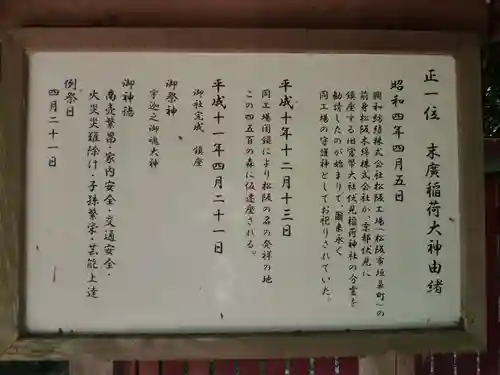 正一位　末廣稲荷大神由緒
昭和四年四月五日
興和紡績株式会社松阪工場（松阪市垣鼻町）の
前身松阪木綿株式会社が、京都伏見に
鎮座する旧官幣大社伏見稲荷神社の分霊を
勧請したのが始まりで、爾来永く
同工場の守護神としてお祀りされていた。
平成十年十二月十三日
同工場閉鎖により松阪の名の発祥の地
この四五百の森に仮遷座される。
平成十一年四月二十一日
御社完成　鎮座
御祭神
宇迦之御魂大神
御神徳
商売繁昌・家内安全・交通安全・
火災災難除け・子孫繁栄・芸能上達
例祭日
四月二十一日